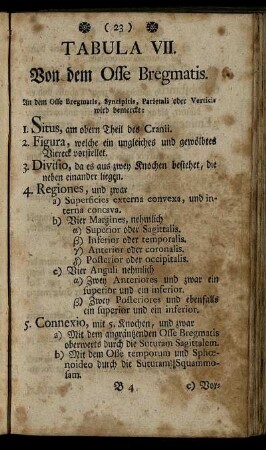 ( 23 )
TABULA VII.
Von dem Osse Bregmatis.
An dem Osse Bregmatis, Syncipitis, Parietali oder Verticis
wird bemerckt:
1. Situs, am obern Theil des Cranii.
2. Figura, welche ein ungleiches und gewölbtes
Viereck vorstellet.
3. Divisio, da es aus zwey Knochen bestehet, die
neben einander liegen.
4. Regiones, und zwar
a) Superficies externa convexa, und in-
terna concava.
b) Vier Margines, nehmlich
α) Superior oder Sagittalis.
β) Inferior oder temporalis.
γ) Anterior oder coronalis.
δ) Posterior oder occipitalis.
c) Vier Anguli nehmlich
α) Zwey Anteriores und zwar ein
superior und ein inferior.
β) Zwey Posteriores und ebenfalls
ein superior und ein inferior.
5. Connexio, mit 5. Knochen, und zwar
a) Mit dem angräntzenden Osse Bregmatis
oberwerts durch die Suturam Sagittalem.
b) Mit dem Osse temporum und Sphœ-
noideo durch die Suturam Squammo-
sam.
B 4
c) Vor-